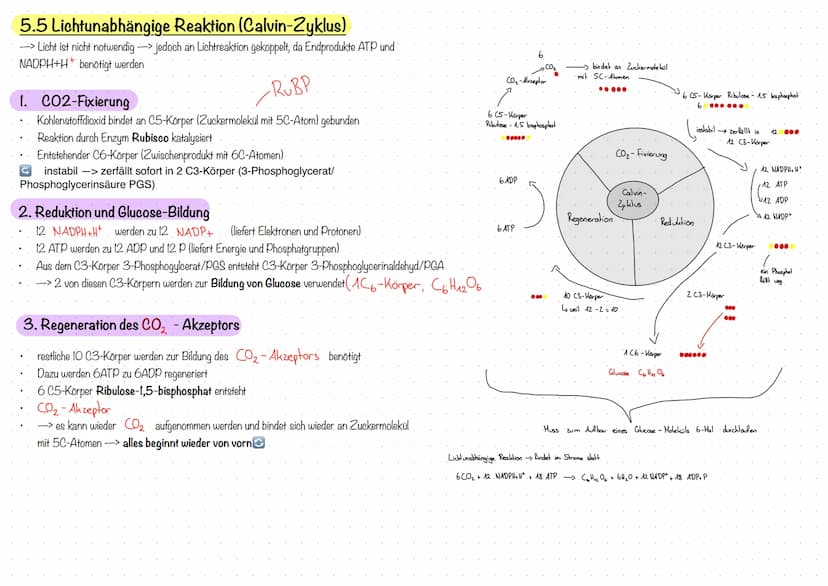 5.5 Lichtunabhängige Reaktion (Calvin-Zyklus)
—> Licht ist nicht notwendig —> jedoch an Lichtreaktion gekoppelt, da Endprodukte ATP und
NADPH+H⁺ benötigt werden
RuBP
1. CO2-Fixierung
• Kohlenstoffdioxid bindet an C5-Körper (Zuckermolekül mit 5C-Atom) gebunden
• Reaktion durch Enzym Rubisco katalysiert
• Entstehender C6-Körper (Zwischenprodukt mit 6C-Atomen)
instabil —> zerfällt sofort in 2 C3-Körper (3-Phosphoglycerat/
Phosphoglycerinsäure PGS)
2. Reduktion und Glucose-Bildung
• 12 NADPH+H⁺ werden zu 12 NADP+ (liefert Elektronen und Protonen)
• 12 ATP werden zu 12 ADP und 12 P (liefert Energie und Phosphatgruppen)
• Aus dem C3-Körper 3-Phosphoglycerat/PGS entsteht C3-Körper 3-Phosphoglycerinaldehyd/PGA
• —> 2 von diesen C3-Körpern werden zur Bildung von Glucose verwendet (1C₆-Körper, C₆H₁₂O₆
3. Regeneration des CO₂ - Akzeptors
• restliche 10 C3-Körper werden zur Bildung des CO₂-Akzeptors benötigt
• Dazu werden 6ATP zu 6ADP regeneriert
• 6 C5-Körper Ribulose-1,5-bisphosphat entsteht
• CO₂-Akzeptor
• —> es kann wieder CO₂ aufgenommen werden und bindet sich wieder an Zuckermolekül
mit 5C-Atomen —> alles beginnt wieder von vorn
6
CO₂ → bindet an Zuckermolekül
mit 5C-Atomen
CO₂-Akzeptor
6 C5-Körper
Ribulose-1,5 bisphosphat
6 C5-Körper Ribulose-1,5 bisphosphat
6
instabil → zerfällt in 12
12 C3-Körper
CO₂-Fixierung
Calvin-
Zyklus
Regeneration
Reduktion
6 ADP
6 ATP
12 NADPH+H⁺
12 ATP
12 ADP
12 NADP⁺
12 C3-Körper
ein Phosphat
fällt weg
10 C3-Körper
↳ weil 12-2=10
2 C3-Körper
1 C6-Körper
Glucose C₆H₁₂O₆
Muss zum Aufbau eines Glucose-Moleküls 6-Mal durchlaufen
Lichtunabhängige Reaktion → findet im Stroma statt
6CO₂ + 12 NADPH+H⁺ + 18 ATP → C₆H₁₂O₆ + 6H₂O + 12 NADP⁺ + 18 ADP+P